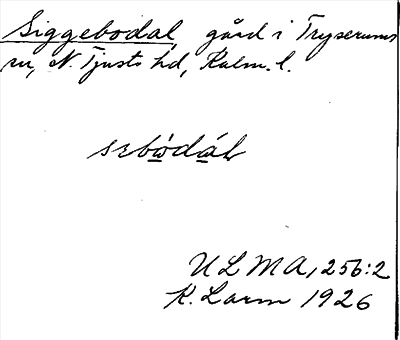 Siggebodal, gård i Tryserums
sn, N. Tjusts hd, Kalm. l.
ULMA, 256:2
K. Larm 1926